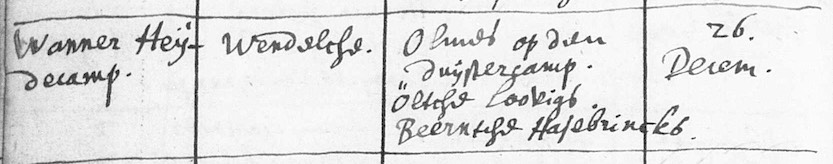 Wanner Heÿ-
decamp.
Wendelche.
Olmes op den
Duÿstercamp.
Öltche Lodvigs.
Beerntche Hasebrincks.
26.
Decem.